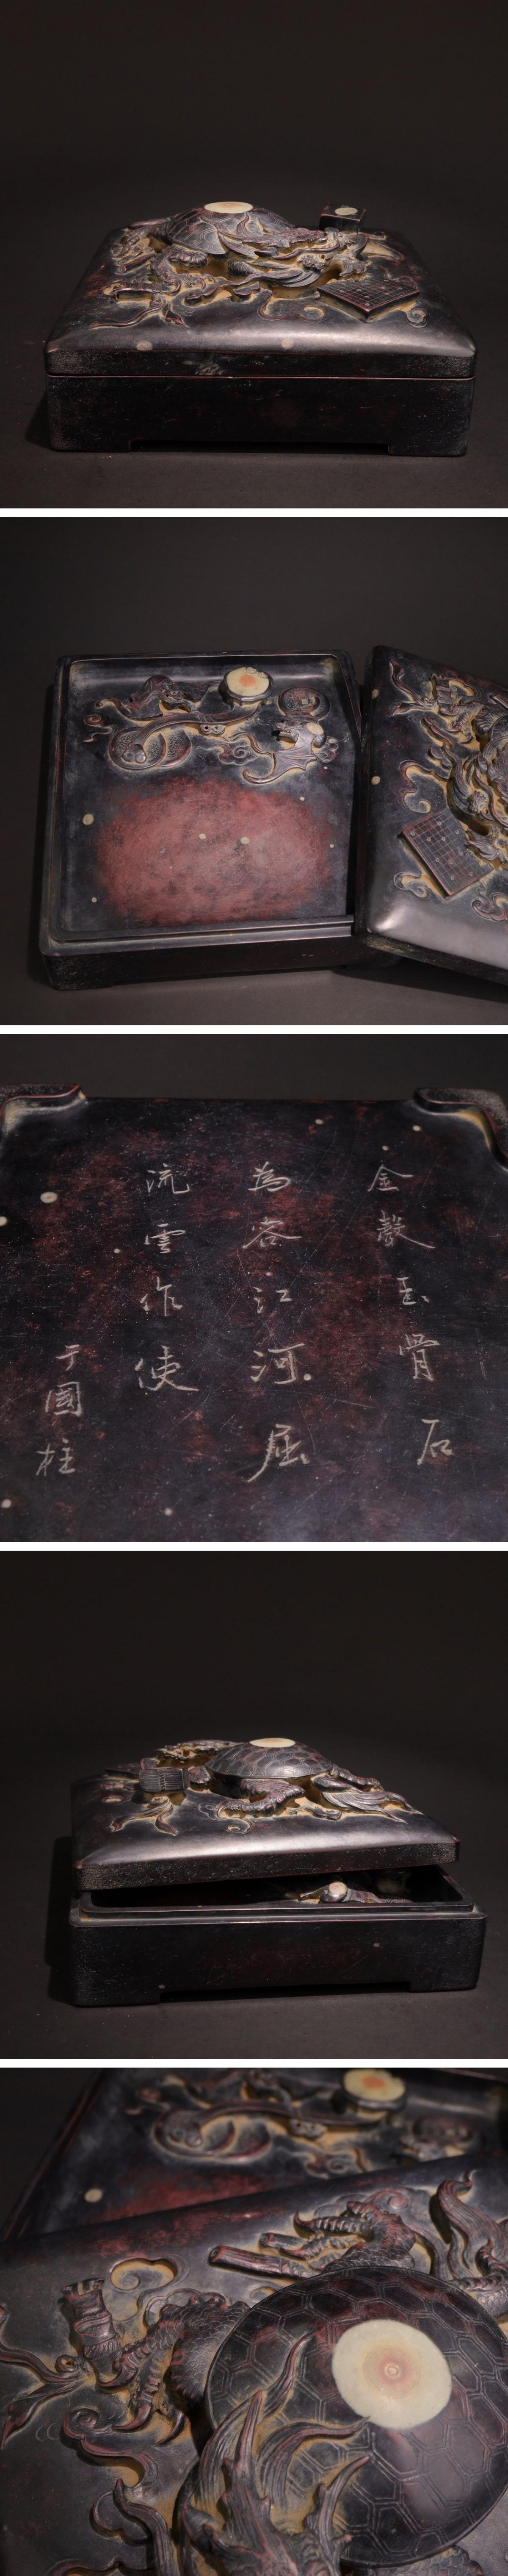 金聲玉骨石
為容江河屈
流雲作使
于國柱